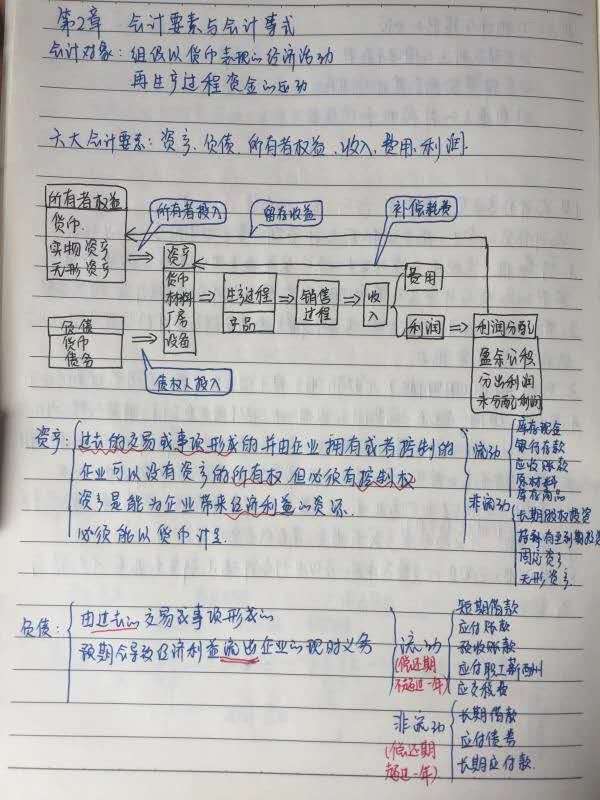 第2章 会计要素与会计等式
会计对象：组织以货币表现的经济活动
再生产过程资金的运动
六大会计要素：资产、负债、所有者权益、收入、费用、利润.
所有者权益
货币.
实物资产
无形资产
所有者投入
留存收益
补偿耗费
资产
货币
材料
厂房
设备
生产过程
产品
销售
过程
收
入
费用
利润
利润分配
盈余公积
分出利润
未分配利润
负债
货币
债务
债权人投入
资产：过去的交易或事项形成的并由企业拥有或者控制的
企业可以没有资产的所有权但必须有控制权
资产是能为企业带来经济利益的资源.
必须能以货币计量.
流动
库存现金
银行存款
应收账款
原材料
库存商品
非流动
长期股权投资
持有至到期投资
固定资产
无形资产.
负债：
由过去的交易或事项形成的
预期会导致经济利益流出企业的现时义务
流动
(偿还期
不超过一年)
短期借款
应付账款
预收账款
应付职工薪酬
应交税费
非流动
(偿还期
超过一年)
长期借款
应付债券
长期应付款.